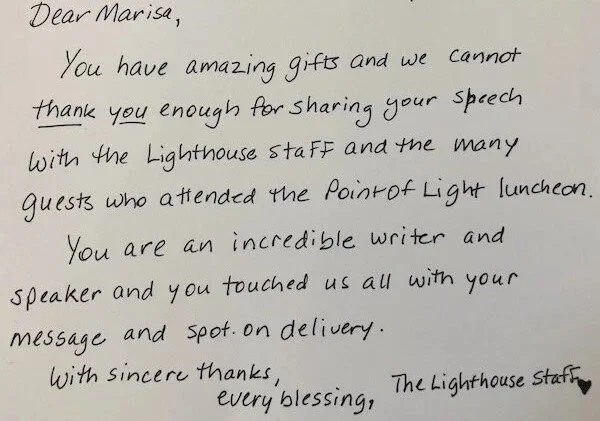 Dear Marisa,
You have amazing gifts and we cannot
thank you enough for sharing your speech
with the Lighthouse staff and the many
guests who attended the Point of Light luncheon.
You are an incredible writer and
speaker and you touched us all with your
message and spot-on delivery.
With sincere thanks,
every blessing, The Lighthouse Staff ♥